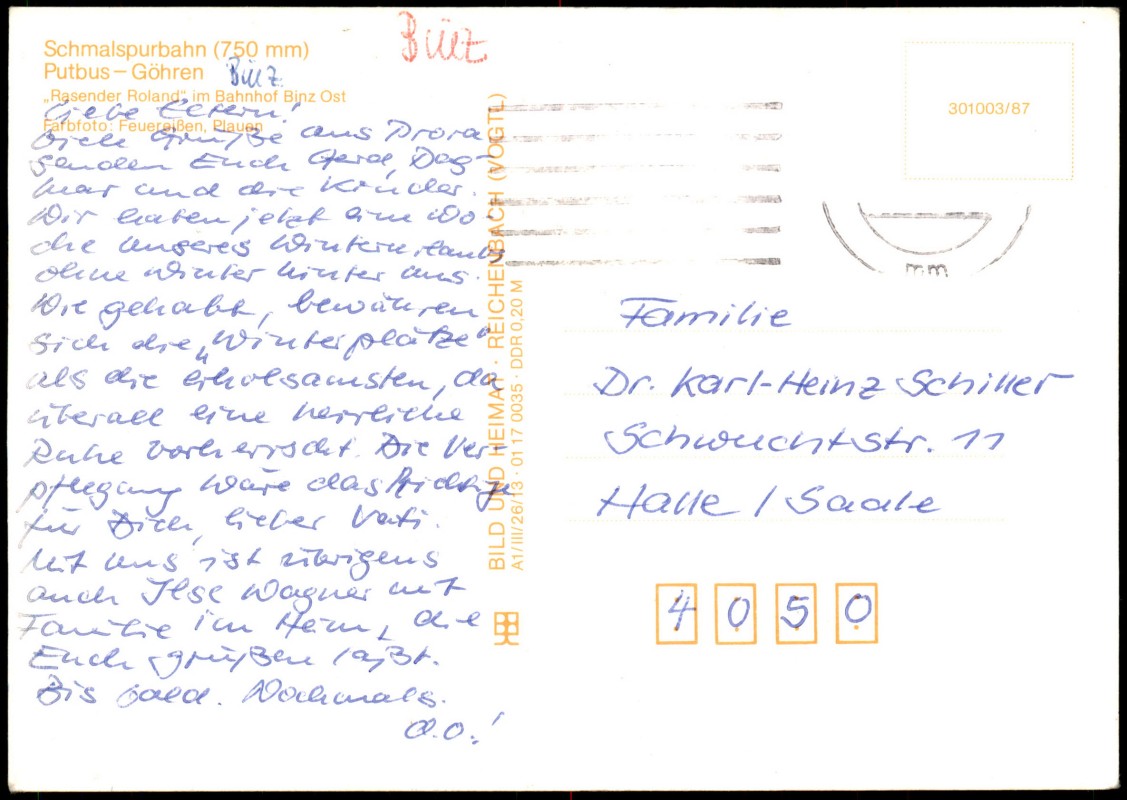 Schmalspurbahn (750 mm)
Putbus – Göhren
Binz
„Rasender Roland" im Bahnhof Binz Ost
Farbfoto: Feuereißen, Plauen
Binz
Liebe Eltern!
Viele Grüße aus Prora
senden Euch Gerd, Dag-
mar und die Kinder.
Wir haben jetzt eine Wo
che unseres Winterurlaubs
ohne Winter hinter uns.
Wie gehabt, bewähren
sich die „Winterplätze"
als die erholsamsten, da
überall eine herrliche
Ruhe vorherrscht. Die Ver-
pflegung wäre das Richtige
für Dich, lieber Vati.
Mit uns ist übrigens
auch Ilse Wagner mit
Familie im Heim, die
Euch grüßen läßt.
Bis bald. Nochmals
d.O.!
BILD UND HEIMAT · REICHENBACH (VOGTL)
A1/III/26/13 · 01 17 0035 · DDR 0,20 M
301003/87
mm
Familie
Dr. Karl-Heinz Schiller
Schwuchtstr. 11
Halle / Saale
4050